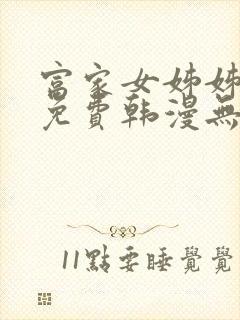 富家女姊姊
免費韩漫無
11點要睡覺覺